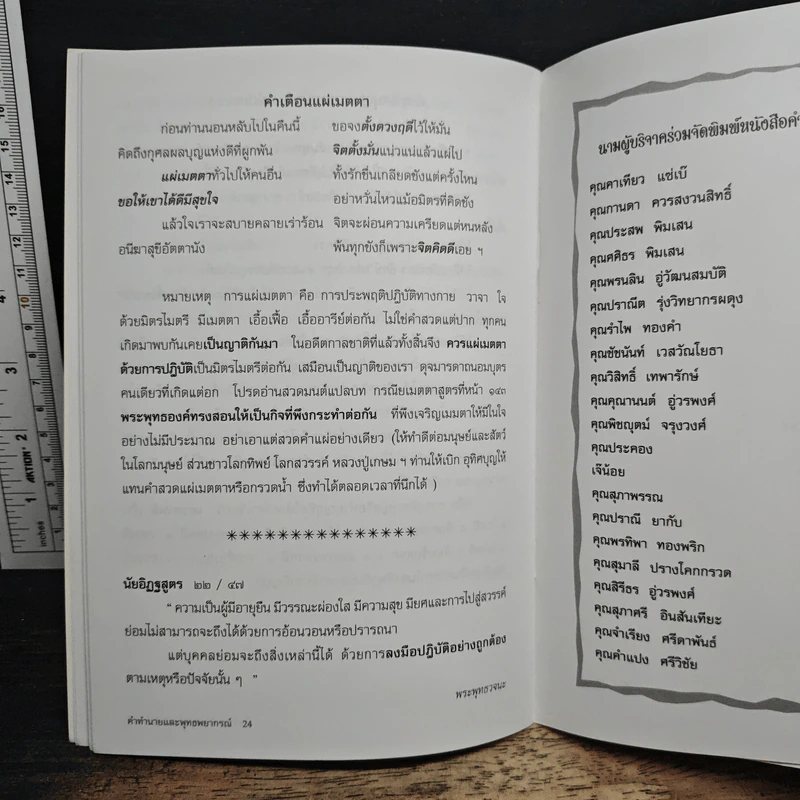 คำเตือนแผ่เมตตา
ก่อนท่านนอนหลับไปในคืนนี้ ขอจงตั้งดวงฤดีไว้ให้มั่น
คิดถึงกุศลผลบุญแห่งดีที่ผูกพัน จิตตั้งมั่นแน่วแน่แล้วแผ่ไป
แผ่เมตตาทั่วไปให้คนอื่น ทั้งรักชื่นเกลียดชังแต่ครั้งไหน
ขอให้เขาได้ดีมีสุขใจ อย่าหวั่นไหวแม้อมิตรที่คิดชัง
แล้วใจเราจะสบายคลายเร่าร้อน จิตจะผ่อนความเครียดแต่หนหลัง
อนีฆาสุขีอัตตานัง พ้นทุกขังก็เพราะจิตคิดดีเอย ฯ
หมายเหตุ การแผ่เมตตา คือ การประพฤติปฏิบัติทางกาย วาจา ใจ
ด้วยมิตรไมตรี มีเมตตา เอื้อเฟื้อ เอื้ออารีย์ต่อกัน ไม่ใช่คำสวดแต่ปาก ทุกคน
เกิดมาพบกันเคยเป็นญาติกันมา ในอดีตกาลชาติที่แล้วทั้งสิ้นจึง ควรแผ่เมตตา
ด้วยการปฏิบัติเป็นมิตรไมตรีต่อกัน เสมือนเป็นญาติของเรา ดุจมารดาถนอมบุตร
คนเดียวที่เกิดแต่อก โปรดอ่านสวดมนต์แปลบท กรณียเมตตาสูตรที่หน้า ๑๔๓
พระพุทธองค์ทรงสอนให้เป็นกิจที่พึงกระทำต่อกัน ที่พึงเจริญเมมตาให้มีในใจ
อย่างไม่มีประมาณ อย่าเอาแต่สวดคำแผ่อย่างเดียว (ให้ทำดีต่อมนุษย์และสัตว์
ในโลกมนุษย์ ส่วนชาวโลกทิพย์ โลกสวรรค์ หลวงปู่เกษม ฯ ท่านให้เบิก อุทิศบุญให้
แทนคำสวดแผ่เมตตาหรือกรวดน้ำ ซึ่งทำได้ตลอดเวลาที่นึกได้ )
***************
นัยอิฏฐสูตร ๒๒ / ๔๗
" ความเป็นผู้มีอายุยืน มีวรรณะผ่องใส มีความสุข มียศและการไปสู่สวรรค์
ย่อมไม่สามารถจะถึงได้ด้วยการอ้อนวอนหรือปรารถนา
แต่บุคคลย่อมจะถึงสิ่งเหล่านี้ได้ ด้วยการลงมือปฏิบัติอย่างถูกต้อง
ตามเหตุหรือปัจจัยนั้น ๆ "
พระพุทธวจนะ
คำทำนายและพุทธพยากรณ์ 24
นามผู้บริจาคร่วมจัดพิมพ์หนังสือคำ
คุณคาเทียว แซ่เบ๊
คุณกานดา ควรสงวนสิทธิ์
คุณประสพ พิมเสน
คุณศศิธร พิมเสน
คุณพรนลิน อู่วัฒนสมบัติ
คุณปราณีต รุ่งวิทยากรผดุง
คุณรำไพ ทองคำ
คุณชัชนันท์ เวสวัณโยธา
คุณวิสิทธิ์ เทพารักษ์
คุณคุณานนต์ อู่วรพงศ์
คุณพิชญุตม์ จรุงวงศ์
คุณประคอง
เจ๊น้อย
คุณสุภาพรรณ
คุณปราณี ยากับ
คุณพรทิพา ทองพริก
คุณสุมาลี ปรางโคกกรวด
คุณสิรีธร อู่วรพงศ์
คุณสุภาศรี อินสันเทียะ
คุณจำเรียง ศรีดาพันธ์
คุณคำแปง ศรีวิชัย
inches
AKTION
1 2 3 4
1 2 3 4 5 6 7 8 9 10 11 12 13 14 15 16